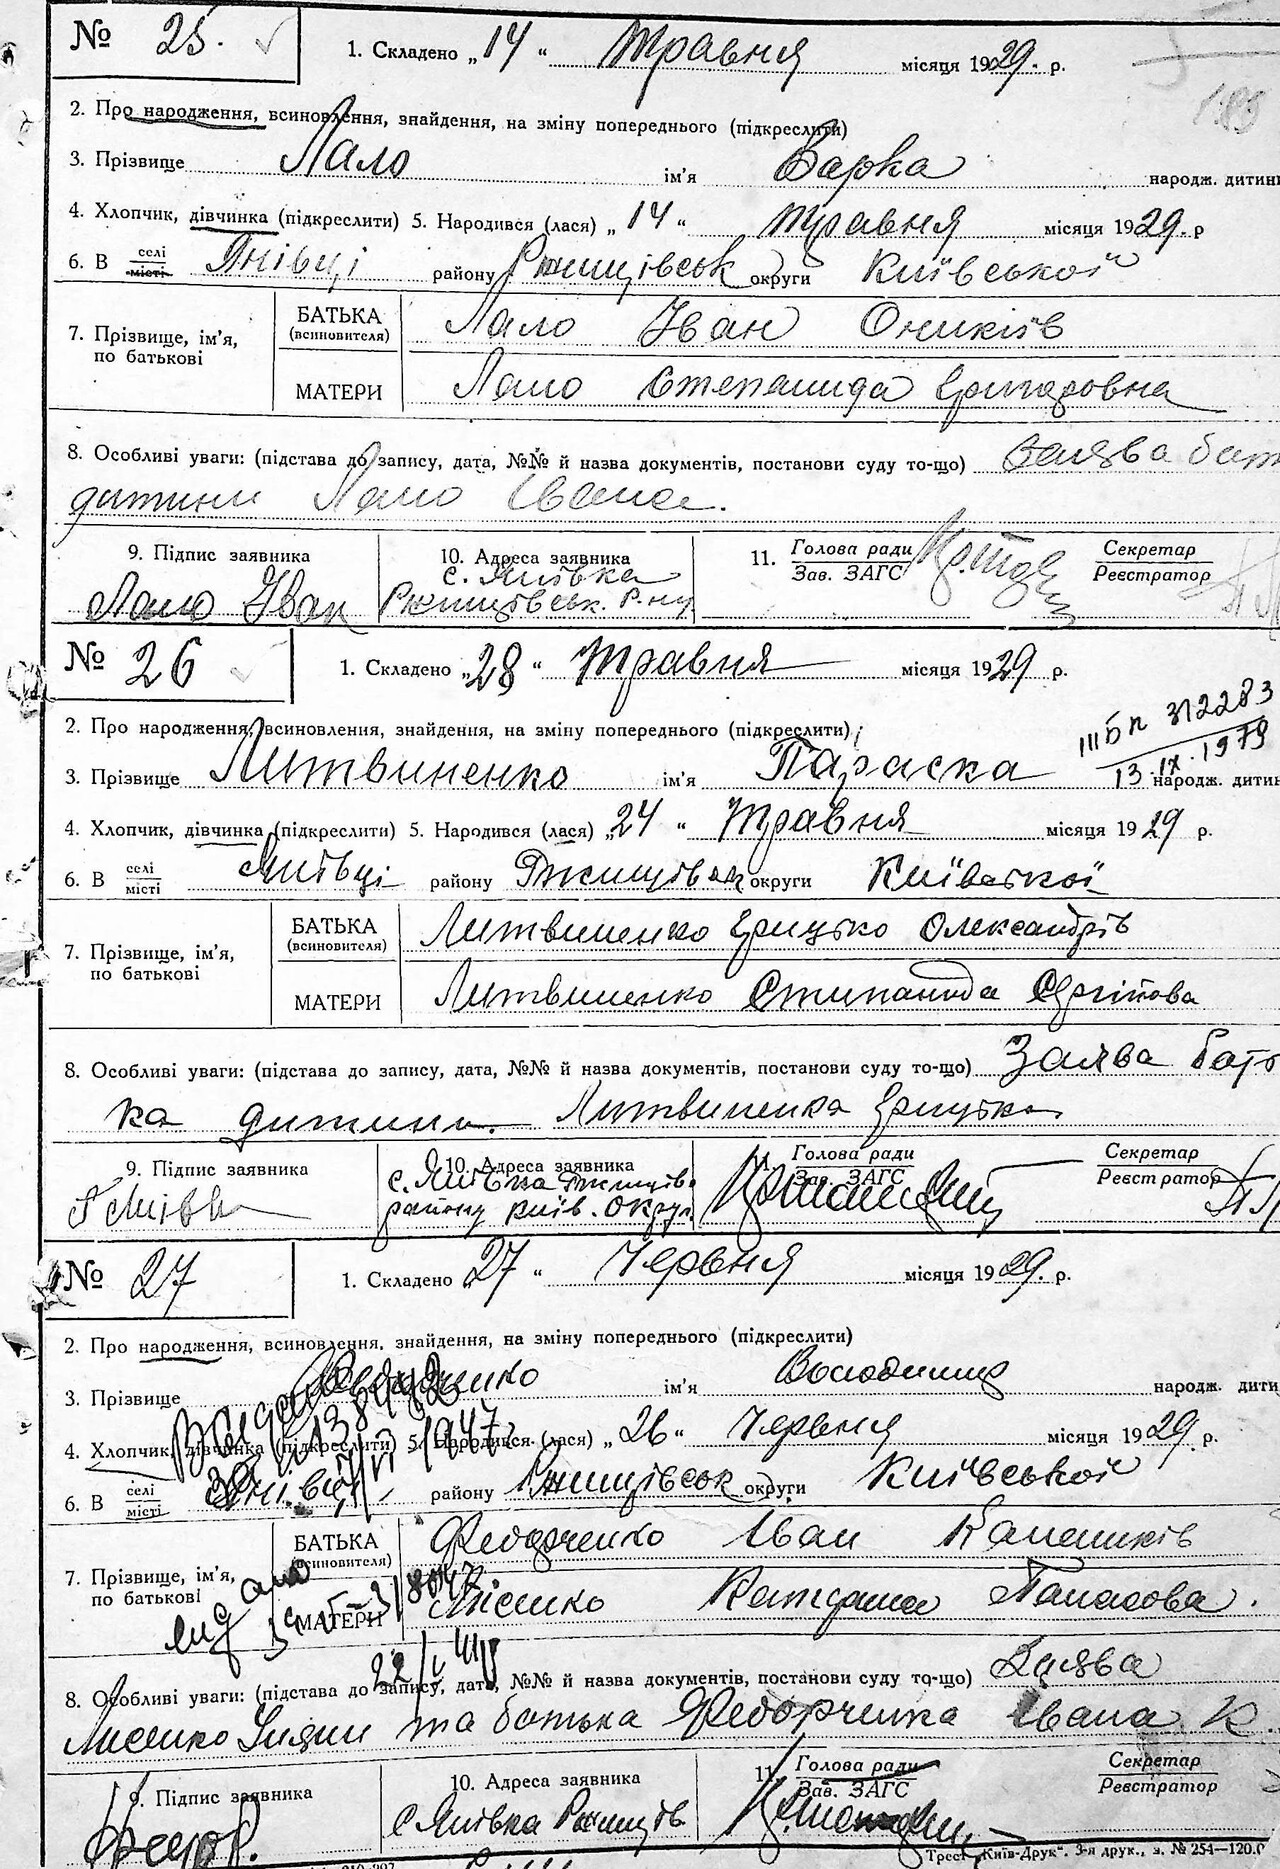 № 25. 1. Складено „14“ Травня місяця 1929. р.
2. Про народження, всиновлення, знайдення, на зміну попереднього (підкреслити)
3. Прізвище Лало ім'я Варка народж. дитини
4. Хлопчик, дівчинка (підкреслити) 5. Народився (лася) „14“ травня місяця 1929. р
6. В селі місті Янівці району Ржищівськ округи Київської
7. Прізвище, ім'я, по батькові БАТЬКА (всиновителя) Лало Іван Оникіїв
МАТЕРИ Лало Степанида Григоровна
8. Особливі уваги: (підстава до запису, дата, №№ й назва документів, постанови суду то-що) Заява бат
дитини Лало Івана.
9. Підпис заявника 10. Адреса заявника 11. Голова ради Зав. ЗАГС Секретар Реєстратор
Лало Іван с. Янівка Ржищівськ. р-ну
№ 26 1. Складено „28“ Травня місяця 1929 р.
2. Про народження, всиновлення, знайдення, на зміну попереднього (підкреслити)
ІІІ БК 312283
13.IX.1979
3. Прізвище Литвиненко ім'я Параска народж. дитини
4. Хлопчик, дівчинка (підкреслити) 5. Народився (лася) „24“ Травня місяця 1929 р.
6. В селі місті Янівці району Ржищівськ округи Київської
7. Прізвище, ім'я, по батькові БАТЬКА (всиновителя) Литвиненко Грицько Олександрів
МАТЕРИ Литвиненко Степанида Сергіївна
8. Особливі уваги: (підстава до запису, дата, №№ й назва документів, постанови суду то-що) Заява бать
ка дитини. Литвиненка Грицька
9. Підпис заявника 10. Адреса заявника 11. Голова ради Зав. ЗАГС Секретар Реєстратор
с. Янівка Ржищів.
району Київ. округи
№ 27 1. Складено 27“ Червня місяця 1929. р.
2. Про народження, всиновлення, знайдення, на зміну попереднього (підкреслити)
3. Прізвище Федорченко ім'я Володимир народж. дити
4. Хлопчик, дівчинка (підкреслити) 5. Народився (лася) „26“ Червня місяця 1929. р.
6. В селі місті Янівці району Ржищівськ округи Київської
7. Прізвище, ім'я, по батькові БАТЬКА (всиновителя) Федорченко Іван
МАТЕРИ Лисенко Панасова.
8. Особливі уваги: (підстава до запису, дата, №№ й назва документів, постанови суду то-що) Заява
Лисенко та батька Федорченка Івана К.
9. Підпис заявника 10. Адреса заявника 11. Голова ради Зав. ЗАГС Секретар Реєстратор
Федор. с Янівка Ржищів
Трест „Київ-Друк“, 3-я друк., з. № 254—120.0